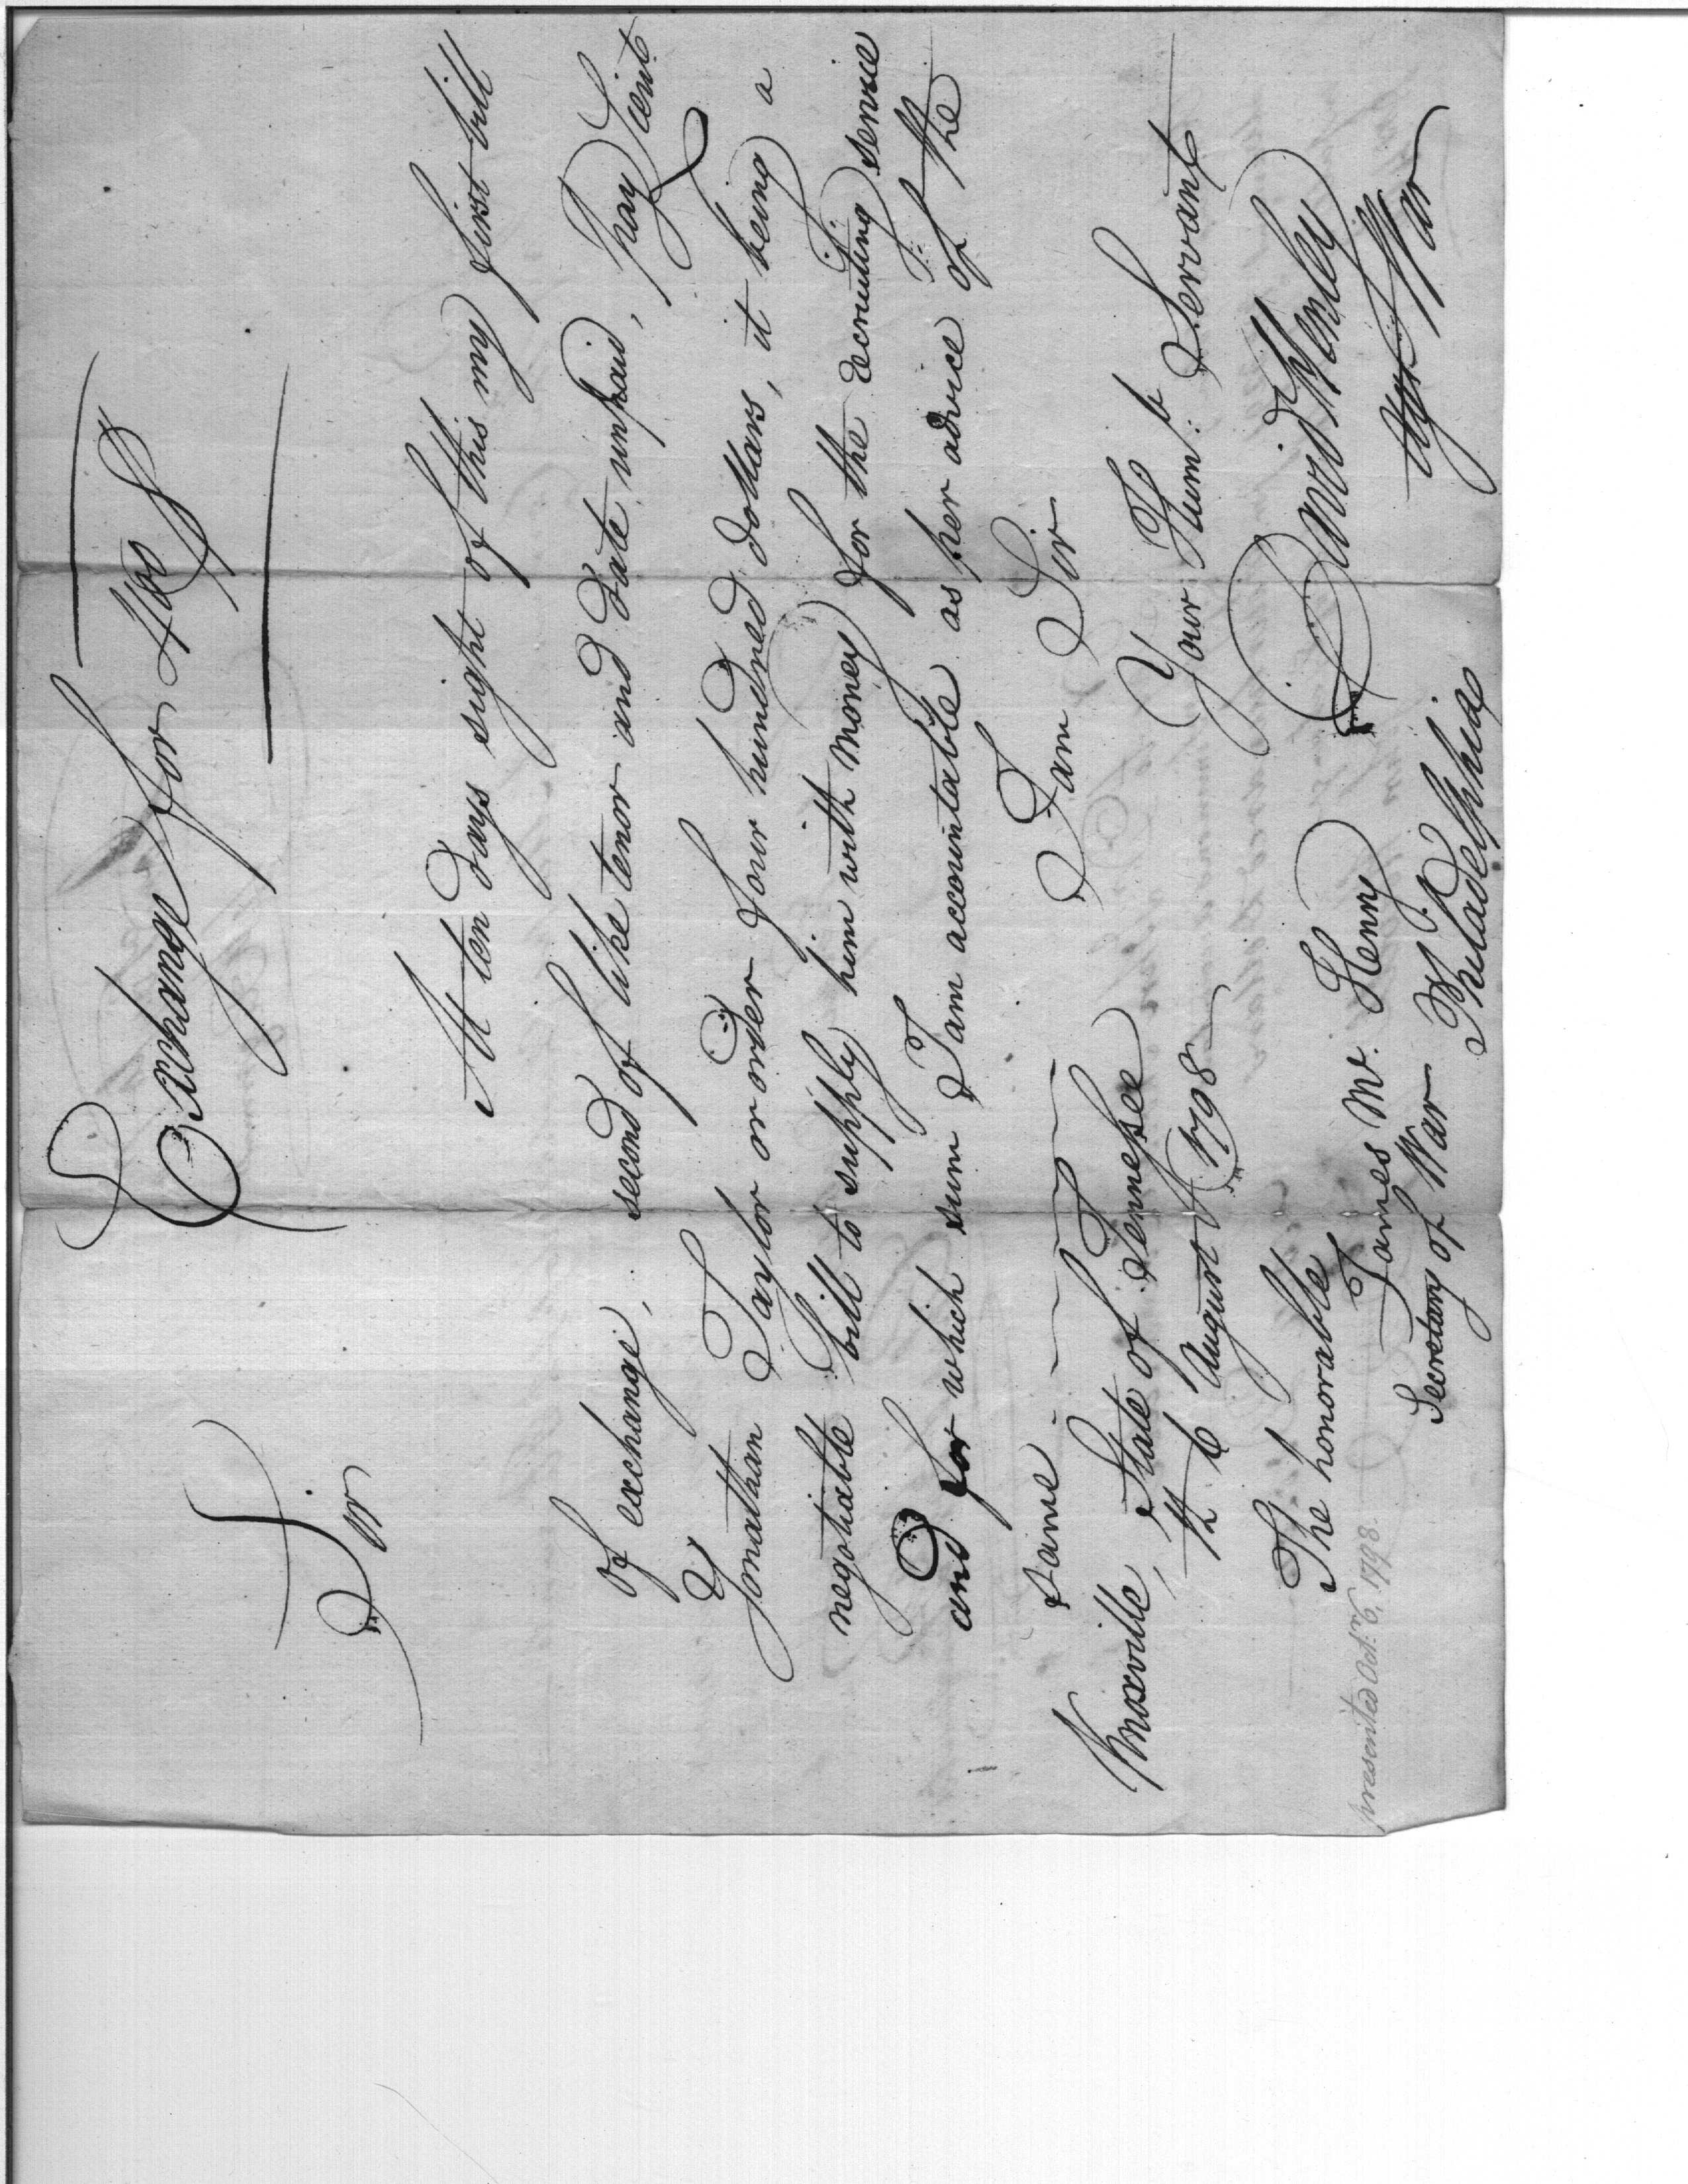 Exchange for 400 $
Sir
At ten days sight of this my first bill
of exchange, second of like tenor and date unpaid, Pay Lieut
Jonathan Taylor or order four hundred dollars, it being a
negotiable bill to supply him with money for the recruiting service
and for which sum I am accountable as per advice of the
same
I am Sir
Your Hum:b Servant
David Henley
Agt War
Knoxville, State of Tennessee
6 August 1798
The honorable
James Mc. Henry
Secretary of War Philadelphia
presented Octr. 6, 1798.